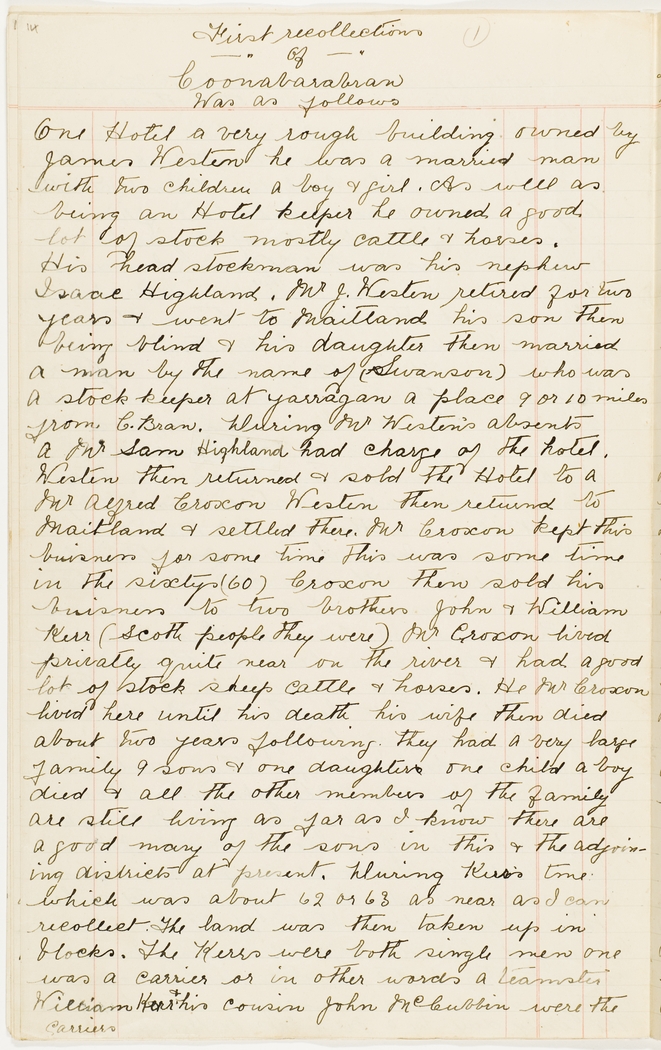 First recollections
1
— " Of — "
Coonabarabran
Was as follows
One Hotel a very rough building owned by
James Westen he was a married man
with two children a boy & girl. As well as
being an Hotel keeper he owned a good
lot of stock mostly cattle & horses.
His head stockman was his nephew
Isaac Highland. Mr J. Westen retired for two
years & went to Maitland his son then
being blind & his daughter then married
a man by the name of (Swanson) who was
a stockkeeper at yarragan a place 9 or 10 miles
from C. Bran. During Mr Westen's absents
a Mr Sam Highland had charge of the hotel.
Westen then returned & sold the Hotel to a
Mr Alfred Croxon Westen then returnd to
Maitland & settled there. Mr Croxon kept this
buisness for some time this was some time
in the sixtys (60) Croxon then sold his
buisness to two brothers John & William
Kerr (Scoth people they were) Mr Croxon lived
privatly quite near on the river & had a good
lot of stock sheep cattle & horses. He Mr Croxon
lived here until his death his wife then died
about two years following. they had a very large
family 9 sons & one daughter one child a boy
died & all the other members of the family
are still living as far as I know there are
a good many of the sons in this & the adjoin-
ing districts at present. During Kerrs time
which was about 62 or 63 as near as I can
recollect. The land was then taken up in
blocks. The Kerrs were both single men one
was a carrier or in other words a teamster
William Kerr & his cousin John McCubbin were the
carriers